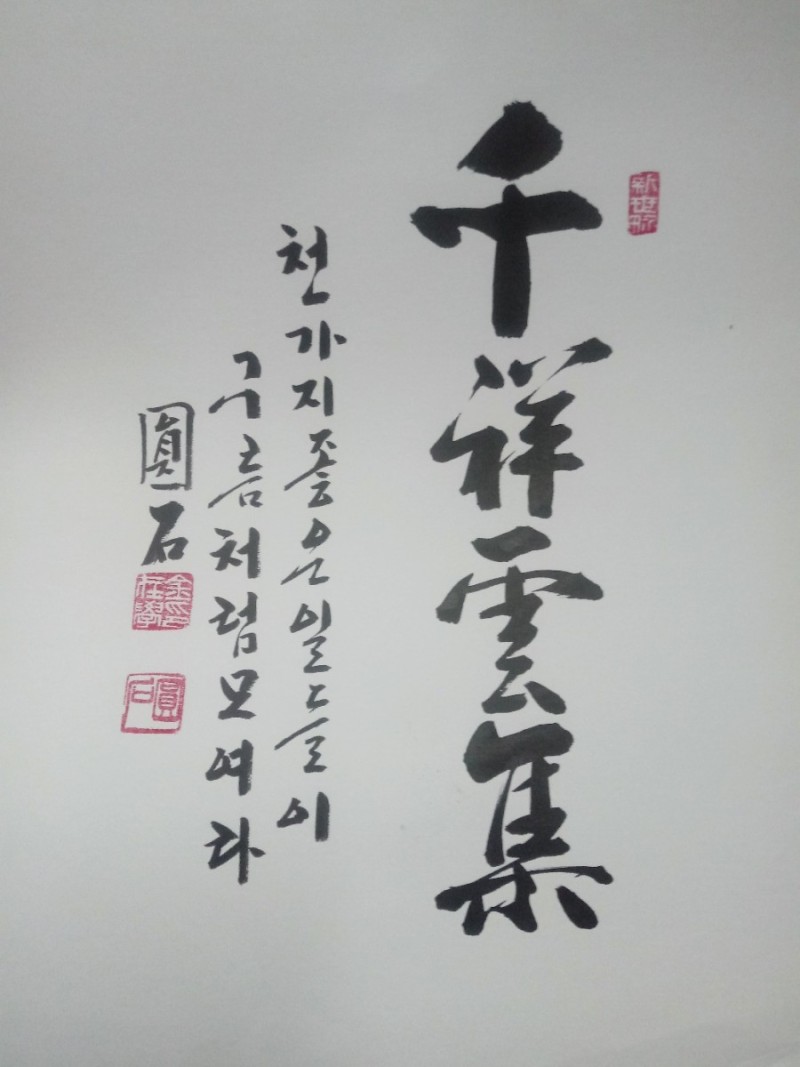 千祥雲集
천가지좋은일들이
구름처럼모여라
圓石
圓石